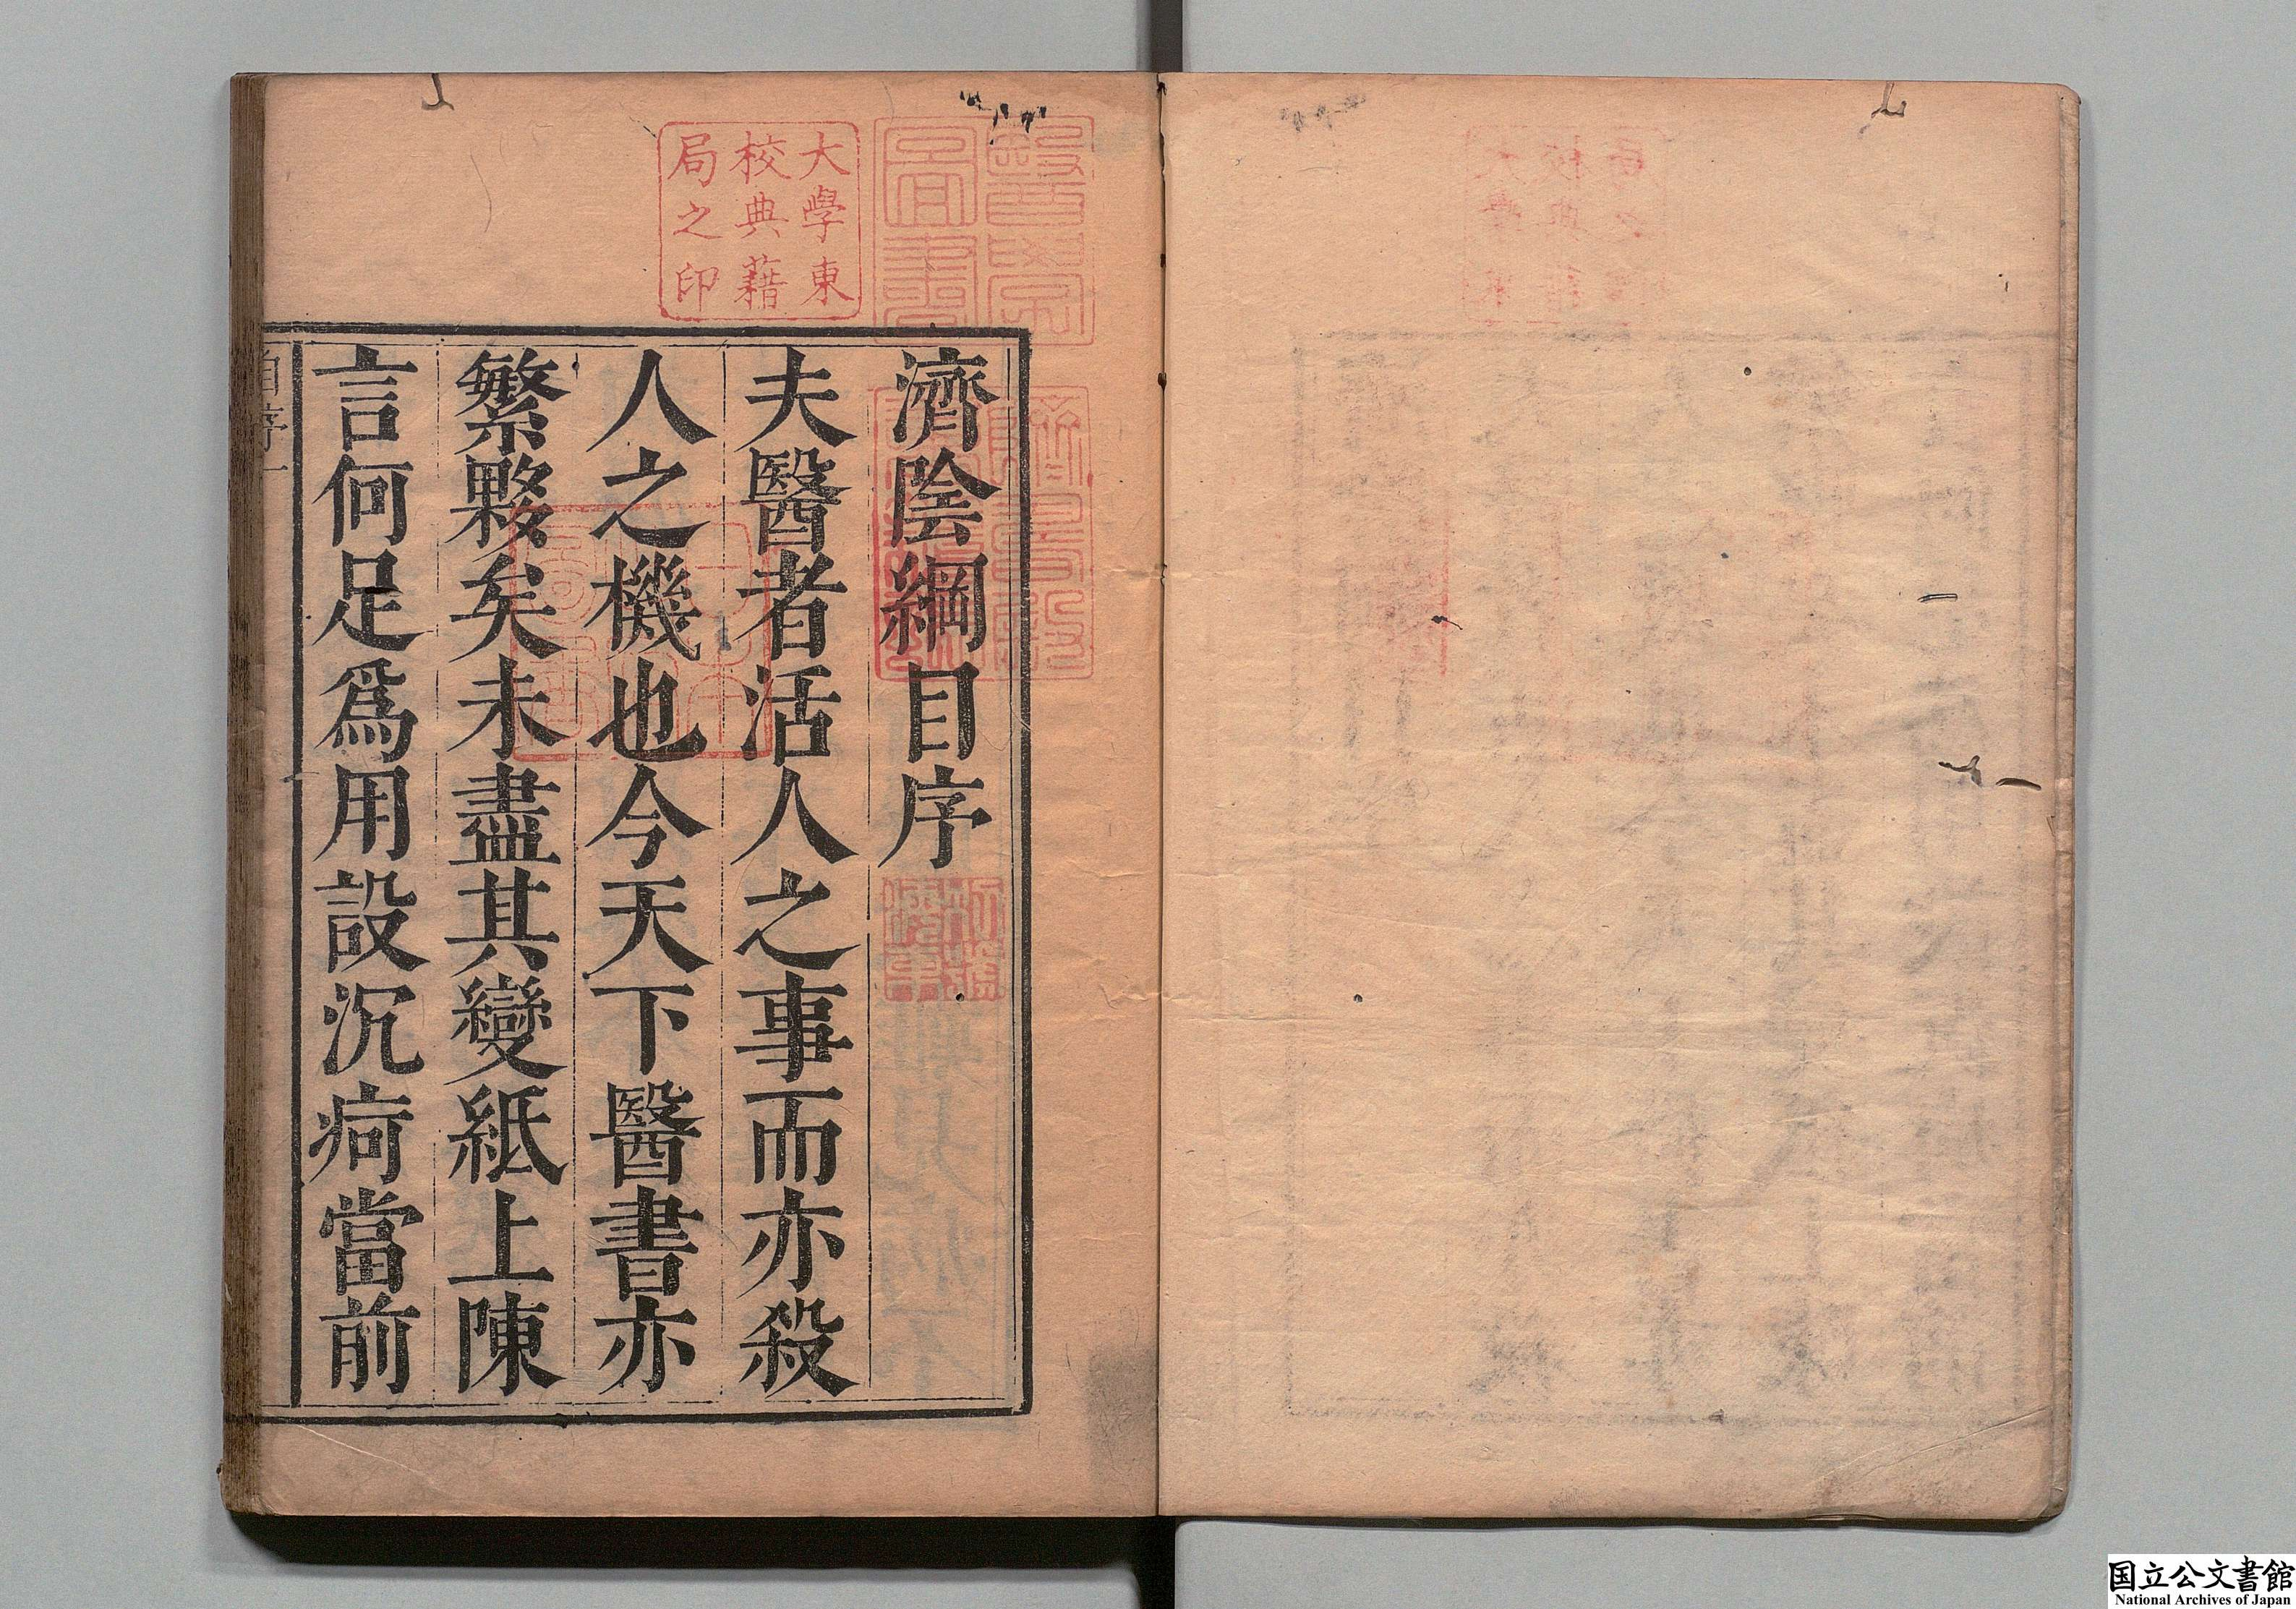 濟陰綱目序
夫醫者活人之事而亦殺
人之機也今天下醫書亦
繁夥矣未盡其變紙上陳
言何足爲用設沉疴當前
自序一
大學東
校典籍
局之印
醫學
圖書
国立公文書館
National Archives of Japan